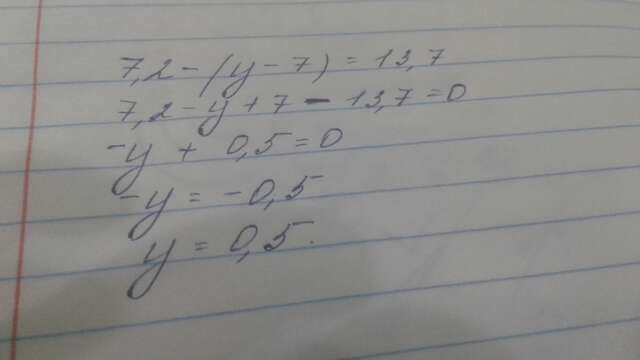 7,2-(y-7)=13,7
7,2-y+7-13,7=0
-y+0,5=0
-y=-0,5
y=0,5.